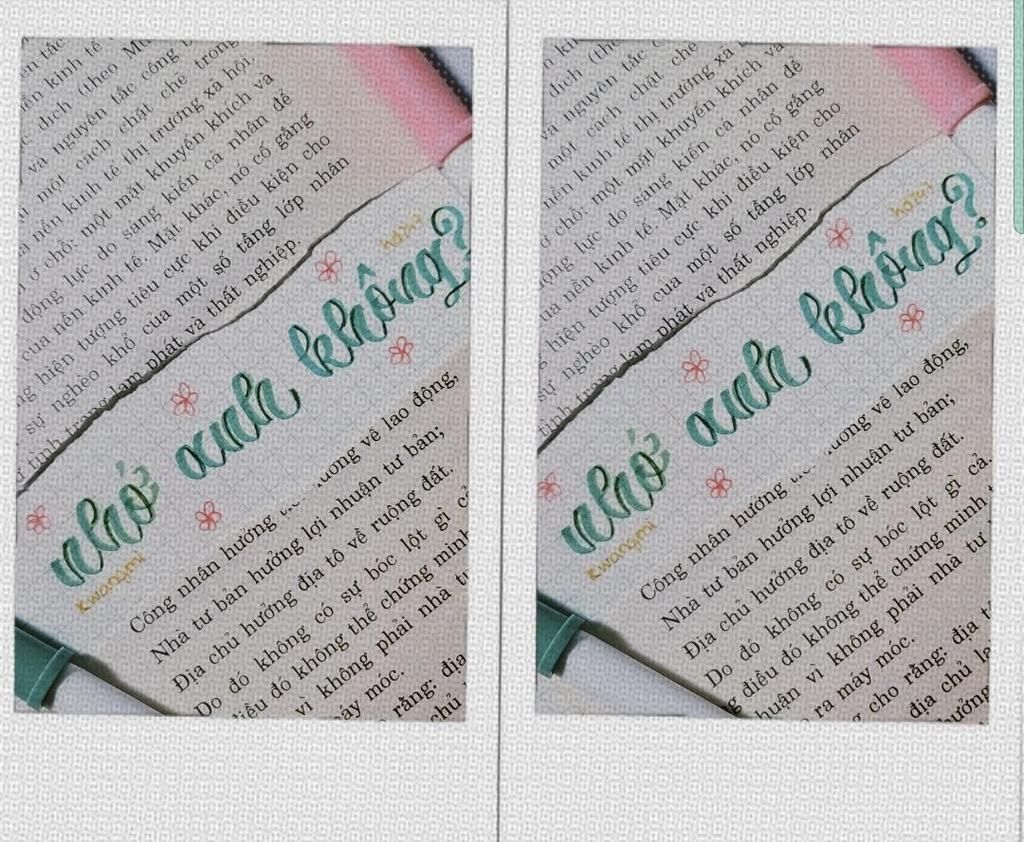 en tắc
nền kinh tế
c dịch (theo
và nguyên tắc công
một cách chặt chẽ trong
nền kinh tế thị trường xã hội.
ở chỗ: một mặt khuyến khích và
động lực do sáng kiến cá nhân để
của nền kinh tế. Mặt khác, nó cố gắng
hiện tượng tiêu cực khi điều kiện cho
sự nghèo khổ của một số tầng lớp nhân
tình trạng lạm phát và thất nghiệp.
haizu
nhớ anh không?
kwangmi
Công nhân hưởng lương về lao động,
Nhà tư bản hưởng lợi nhuận tư bản;
Địa chủ hưởng địa tô về ruộng đất.
Do đó không có sự bóc lột gì cả
điều đó không thể chứng minh
vì không phải nhà tư
máy móc.
rằng: địa
chủ
nền kinh tế
dịch (the
và nguyên tắc
một cách chặt chẽ
nền kinh tế thị trường xã
ở chỗ: một mặt khuyến khích và
động lực do sáng kiến cá nhân để
của nền kinh tế. Mặt khác, nó cố gắng
hiện tượng tiêu cực khi điều kiện cho
sự nghèo khổ của một số tầng lớp nhân
tình trạng lạm phát và thất nghiệp.
haizu
nhớ anh không?
kwangmi
Công nhân hưởng lương về lao động,
Nhà tư bản hưởng lợi nhuận tư bản;
Địa chủ hưởng địa tô về ruộng đất.
Do đó không có sự bóc lột gì cả.
điều đó không thể chứng minh
nhuận vì không phải nhà tư
ra máy móc.
cho rằng: địa tô
địa chủ là
hưởng